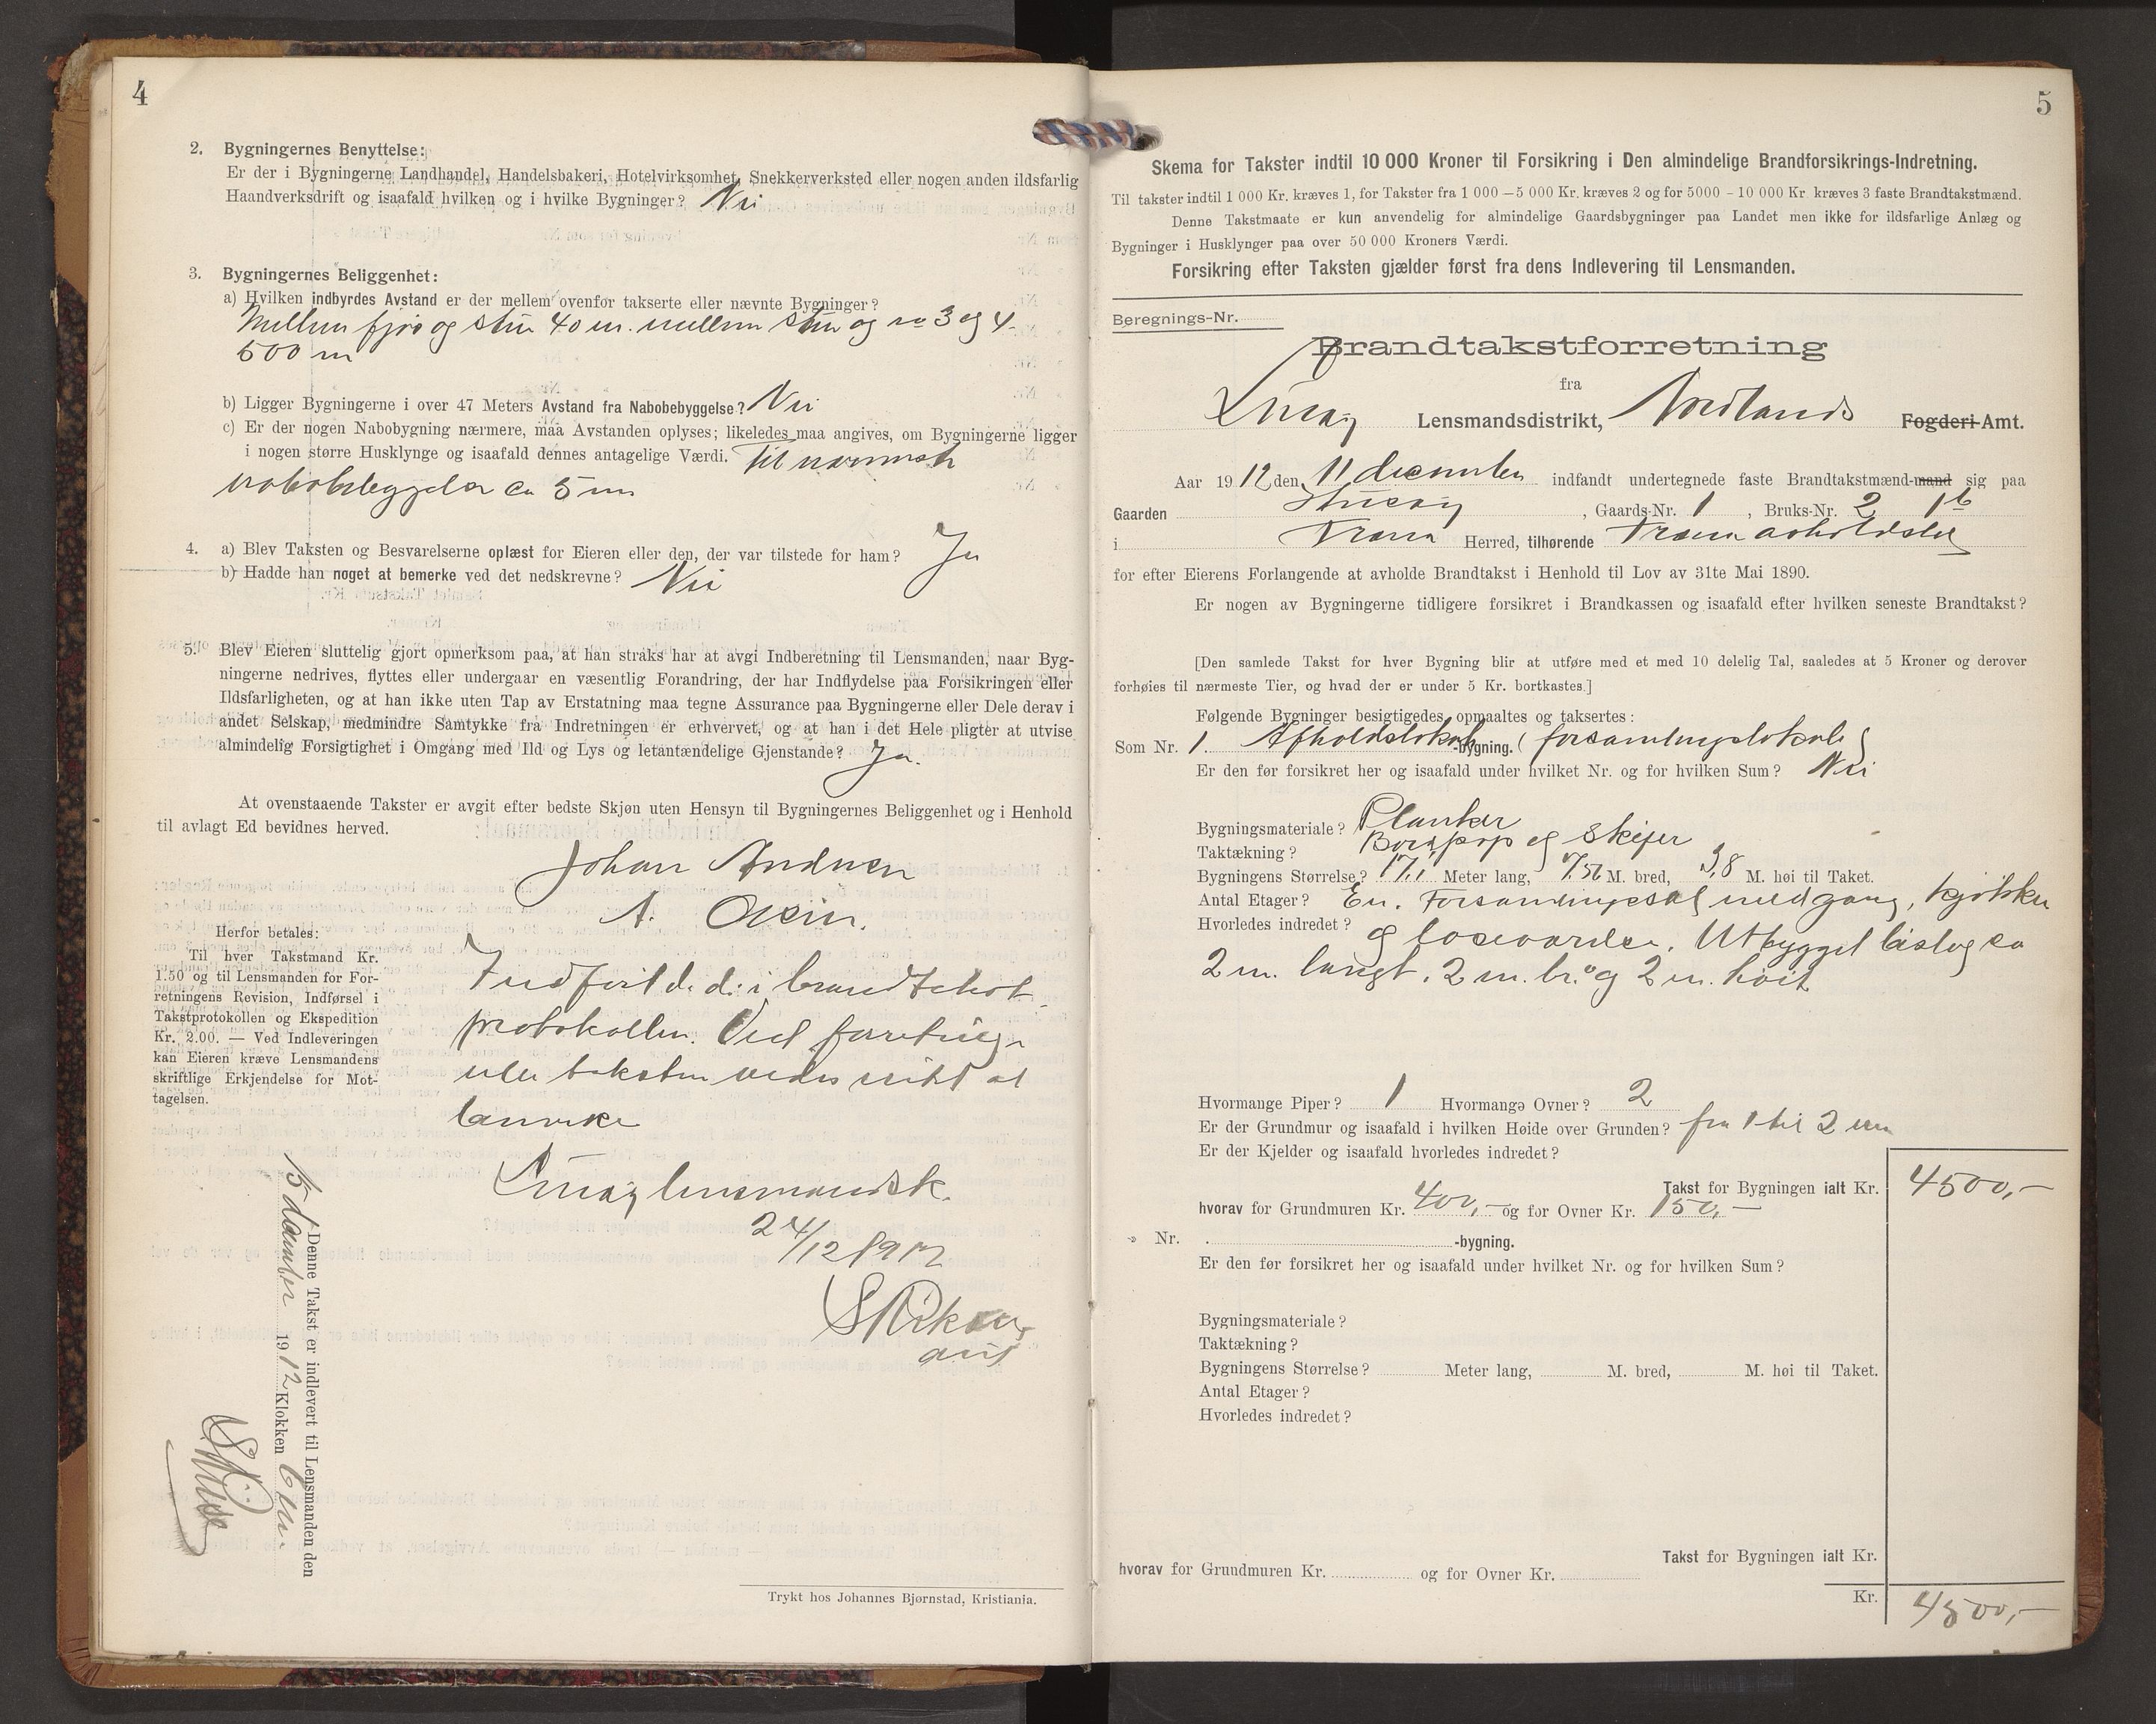 4
2. Bygningernes Benyttelse:
Er der i Bygningerne Landhandel, Handelsbakeri, Hotelvirksomhet, Snekkerverksted eller nogen anden ildsfarlig
Haandverksdrift og isaafald hvilken og i hvilke Bygninger? Nei
3. Bygningernes Beliggenhet:
a) Hvilken indbyrdes Avstand er der mellem ovenfor takserte eller nævnte Bygninger?
Mellem fjøs og stue 40 m. mellem stue og no 3 og 4
500 m
b) Ligger Bygningerne i over 47 Meters Avstand fra Nabobebyggelse? Nei
c) Er der nogen Nabobygning nærmere, maa Avstanden oplyses; likeledes maa angives, om Bygningerne ligger
i nogen større Husklynge og isaafald dennes antagelige Værdi. Til nærmeste
nabobebyggelse ca 5 m
4. a) Blev Taksten og Besvarelserne oplæst for Eieren eller den, der var tilstede for ham? Ja
b) Hadde han noget at bemerke ved det nedskrevne? Nei
5. Blev Eieren sluttelig gjort opmerksom paa, at han straks har at avgi Indberetning til Lensmanden, naar Byg-
ningerne nedrives, flyttes eller undergaar en væsentlig Forandring, der har Indflydelse paa Forsikringen eller
Ildsfarligheten, og at han ikke uten Tap av Erstatning maa tegne Assurance paa Bygningerne eller Dele derav i
andet Selskap, medmindre Samtykke fra Indretningen er erhvervet, og at han i det Hele pligter at utvise
almindelig Forsigtighet i Omgang med Ild og Lys og letantændelige Gjenstande? Ja.
At ovenstaaende Takster er avgit efter bedste Skjøn uten Hensyn til Bygningernes Beliggenhet og i Henhold
til avlagt Ed bevidnes herved.
Johan Andersen
A. Olsen.
Herfor betales:
Til hver Takstmand Kr.
1.50 og til Lensmanden for For-
retningens Revision, Indførsel i
Takstprotokollen og Ekspedition
Kr. 2.00. — Ved Indleveringen
kan Eieren kræve Lensmandens
skriftlige Erkjendelse for Mot-
tagelsen.
Indført d. d. i brandtakst-
protokollen. Ved forretningen
eller taksten vedes intet at
bemerke
Lurøy lensmandsk.
24/12 1912
Denne Takst er indlevert til Lensmanden den
15 december 1912 Klokken
Trykt hos Johannes Bjørnstad, Kristiania.
5
Skema for Takster indtil 10 000 Kroner til Forsikring i Den almindelige Brandforsikrings-Indretning.
Til takster indtil 1 000 Kr. kræves 1, for Takster fra 1 000 – 5 000 Kr. kræves 2 og for 5000 – 10 000 Kr kræves 3 faste Brandtakstmænd.
Denne Takstmaate er kun anvendelig for almindelige Gaardsbygninger paa Landet men ikke for ildsfarlige Anlæg og
Bygninger i Husklynger paa over 50 000 Kroners Værdi.
Forsikring efter Taksten gjælder først fra dens Indlevering til Lensmanden.
Beregnings-Nr.
Brandtakstforretning
fra
Lurøy Lensmandsdistrikt, Nordlands Fogderi-Amt.
Aar 1912 den 11 december indfandt undertegnede faste Brandtakstmænd-mand sig paa
Gaarden Husøy, Gaards-Nr. 1, Bruks-Nr. 2 1b
i Træna Herred, tilhørende Træna avholdslag
for efter Eierens Forlangende at avholde Brandtakst i Henhold til Lov av 31te Mai 1890.
Er nogen av Bygningerne tidligere forsikret i Brandkassen og isaafald efter hvilken seneste Brandtakst?
[Den samlede Takst for hver Bygning blir at utføre med et med 10 delelig Tal, saaledes at 5 Kroner og derover
forhøies til nærmeste Tier, og hvad der er under 5 Kr. bortkastes.]
Følgende Bygninger besigtigedes, opmaaltes og taksertes:
Som Nr. 1. Afholdslokale-bygning. (forsamlingslokale)
Er den før forsikret her og isaafald under hvilket Nr. og for hvilken Sum? Nei
Bygningsmateriale? Planker
Taktækning? Bord, pap og skifer
Bygningens Størrelse? 17,1 Meter lang, 7.56 M. bred, 3,8 M. høi til Taket.
Antal Etager? En. Forsamlingssal med gang, kjøkken
Hvorledes indredet? og loseværelse. Utbygget bislag ca
2 m. langt. 2 m. br. og 2 m. høit
Hvormange Piper? 1 Hvormange Ovner? 2
Er der Grundmur og isaafald i hvilken Høide over Grunden? fra 1 til 2 m
Er der Kjelder og isaafald hvorledes indredet?
Takst for Bygningen ialt Kr. 4500,—
hvorav for Grundmuren Kr. 400,— og for Ovner Kr. 150,—
» Nr. . -bygning.
Er den før forsikret her og isaafald under hvilket Nr. og for hvilken Sum?
Bygningsmateriale?
Taktækning?
Bygningens Størrelse? Meter lang, M. bred, M. høi til Taket.
Antal Etager?
Hvorledes indredet?
Takst for Bygningen ialt Kr.
hvorav for Grundmuren Kr. og for Ovner Kr.
Kr. 4500,—